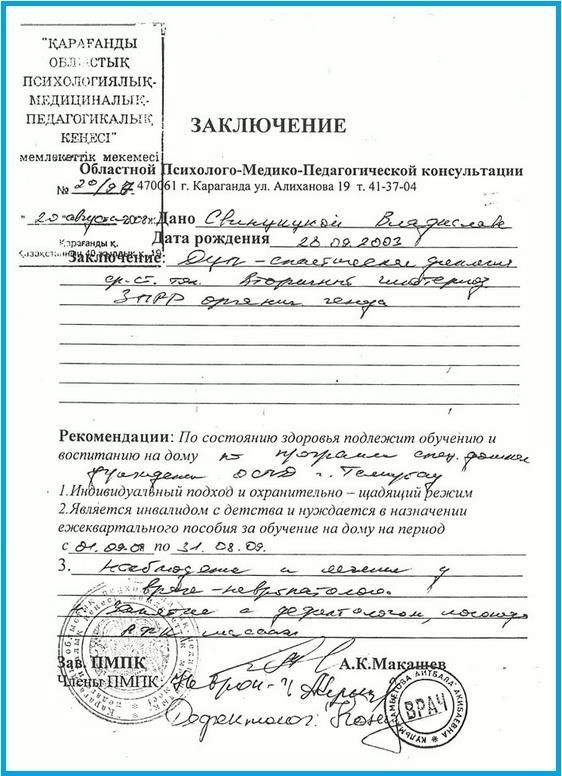 "ҚАРАҒАНДЫ
ОБЛЫСТЫҚ
ПСИХОЛОГИЯЛЫҚ-
МЕДИЦИНАЛЫҚ-
ПЕДАГОГИКАЛЫҚ
КЕҢЕСІ"
мемлекеттік мекемесі
ЗАКЛЮЧЕНИЕ
Областной Психолого-Медико-Педагогической консультации
№ 470061 г. Караганда ул. Алиханова 19 т. 41-37-04
"20" августа 2008г. Дано Владиславе
Дата рождения 2003
Қарағанды қ.
Заключение: ДЦП – спастическая диплегия
ср. ст. тяж. Вторичный
ЗПРР органич. генеза
Рекомендации: По состоянию здоровья подлежит обучению и
воститанию на дому по программе спец. дошкол
учреждения г. Темиртау
1.Индивидуальный подход и охранительно – щадящий режим
2.Является инвалидом с детства и нуждается в назначении
ежеквартального пособия за обучение на дому на период
с 01.09.08 по 31.08.09.
3. Наблюдение и лечение у
врача-невропатолога.
Занятие с дефектологом, логопедом
массаж
Зав. ПМПК А.К.Макашев
Члены ПМПК: Невроп-г
Дефектолог:
ВРАЧ
КУЛЬМАМБЕТОВА АИТБАЛА АКИБАЕВНА